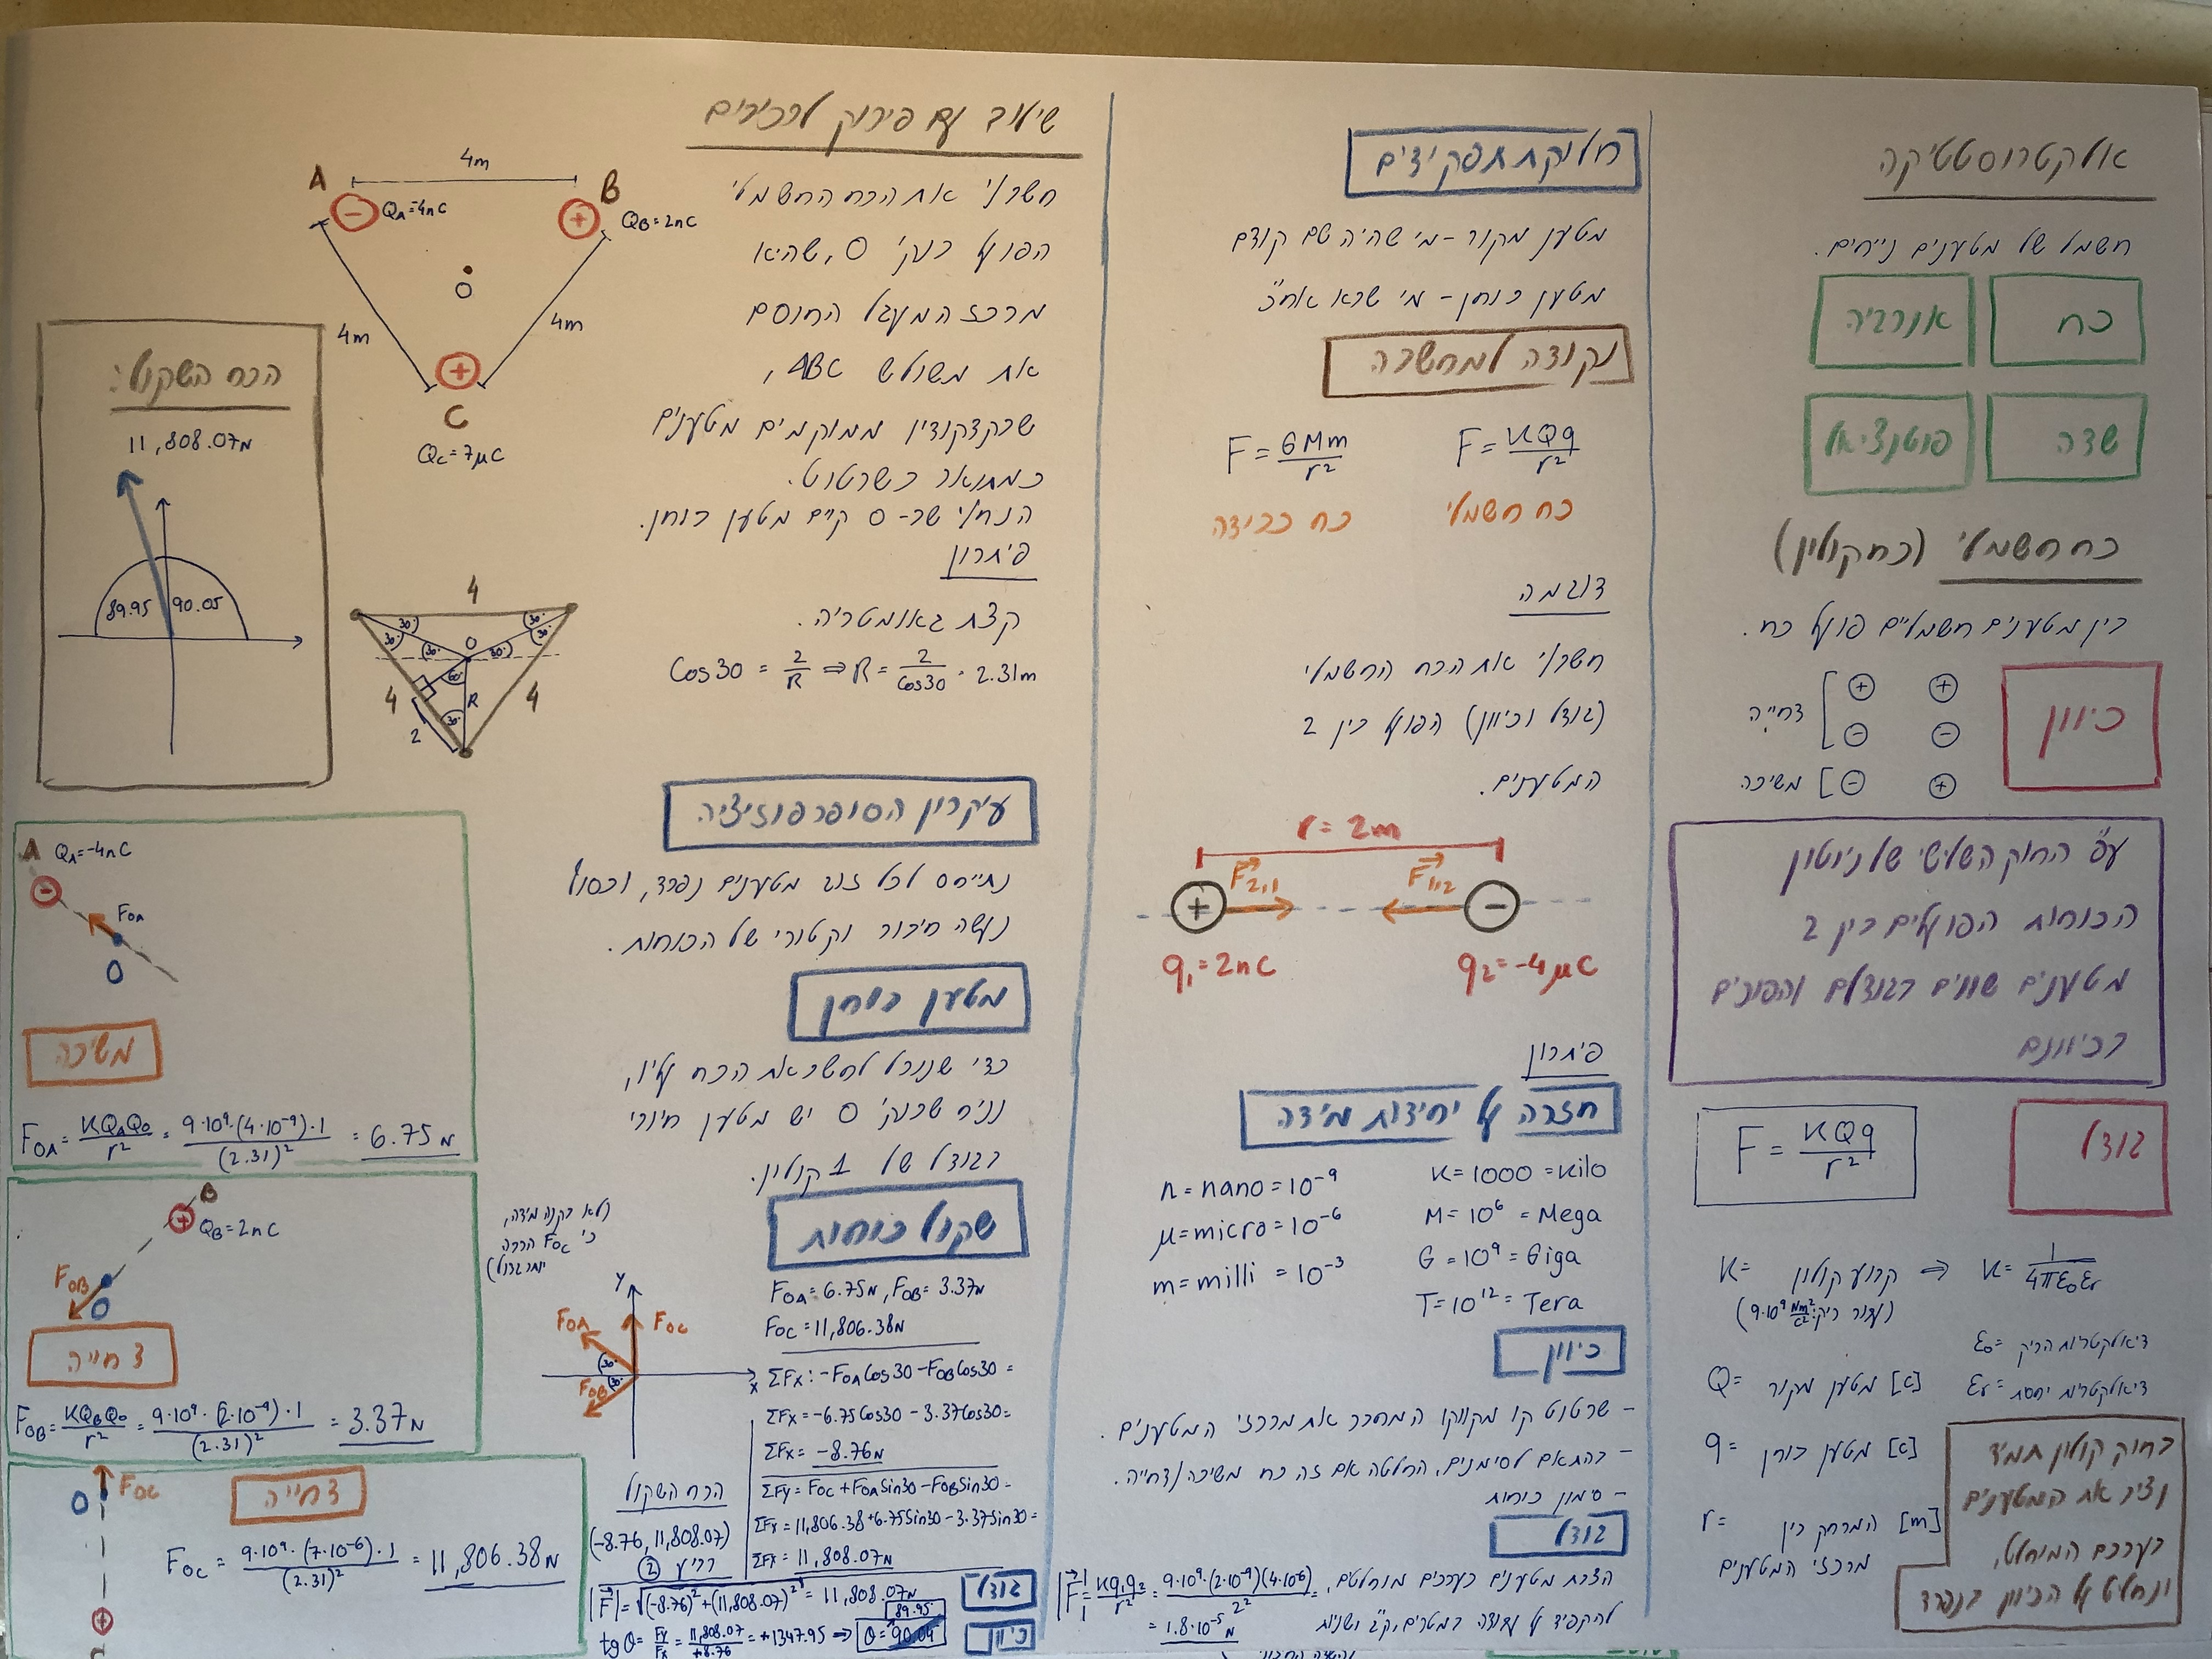 אלקטרוסטטיקה
חשמל של מטענים נייחים.
כח
אנרגיה
שדה
פוטנציאל
כח חשמלי (כח קולון)
בין מטענים חשמליים פועל כח.
כיוון
+ +
- -
דחייה
+ -
משיכה
עפ"י החוק השלישי של ניוטון
הכוחות הפועלים בין 2
מטענים שווים בגודלם והפוכים
בכיוונם
גודל
F = KQq/r²
K = קבוע קולון ⇒ K = 1/4πε₀εᵣ
(עבור ריק: 9·10⁹ Nm²/c²)
ε₀ = דיאלקטריות הריק
εᵣ = דיאלקטריות יחסית
Q = מטען מקור [c]
q = מטען בוחן [c]
r = המרחק בין [m]
מרכזי המטענים
בחוק קולון תמיד
נציב את המטענים
בערכם המוחלט,
ונחליט על הכיוון בנפרד
חלוקת תפקידים
מטען מקור - מי שהיה שם קודם
מטען בוחן - מי שבא אח"כ
נקודה למחשבה
F = KQq/r²
F = GMm/r²
כח חשמלי
כח כבידה
דוגמה
חשב/י את הכח החשמלי
(גודל וכיוון) הפועל בין 2
המטענים.
r = 2m
F₂,₁
F₁,₂
+
-
q₁ = 2nC
q₂ = -4μC
פיתרון
חזרה על יחידות מידה
K = 1000 = Kilo
M = 10⁶ = Mega
G = 10⁹ = Giga
T = 10¹² = Tera
n = nano = 10⁻⁹
μ = micro = 10⁻⁶
m = milli = 10⁻³
כיוון
- שרטוט קו מקווקו המחבר את מרכזי המטענים.
- בהתאם לסימנים, החלטה אם זה כח משיכה/דחייה.
- סימון כוחות
גודל
הצבת מטענים בערכים מוחלטים,
להקפיד על עבודה במטרים, ק"ג ושניות
|F| = Kq₁q₂/r² = 9·10⁹·(2·10⁻⁹)(4·10⁻⁶)/2²
= 1.8·10⁻⁵ N
שילוב עם פירוק לרכיבים
חשב/י את הכח החשמלי
הפועל בנק' O, שהיא
מרכז המעגל החוסם
את משולש ABC,
שבקדקודיו ממוקמים מטענים
כמתואר בשרטוט.
הנח/י שב- O קיים מטען בוחן.
פיתרון
קצת גאומטריה.
Cos30 = 2/R ⇒ R = 2/Cos30 = 2.31m
4m
A
- QA = -4nC
B
+
QB = 2nC
O
4m
4m
+
C
Qc = 7μC
4
30° 30°
30° 30°
O
30° 30°
60°
R
4 4
30°
2
הכח השקול:
11,808.07N
89.95 90.05
עיקרון הסופרפוזיציה
נתייחס לכל זוג מטענים נפרד, ובסוף
נעשה חיבור וקטורי של הכוחות.
מטען בוחן
כדי שנוכל לחשב את הכח עליו,
נניח שבנק' O יש מטען חיובי
בגודל של 1 קולון.
שקול כוחות
FOA = 6.75N, FOB = 3.37N
FOC = 11,806.38N
ΣFx: -FOACos30 - FOBCos30 =
ΣFx = -6.75Cos30 - 3.37Cos30 =
ΣFx = -8.76N
ΣFy = FOC + FOASin30 - FOBSin30 =
ΣFy = 11,806.38 + 6.75Sin30 - 3.37Sin30 =
ΣFx = 11,808.07N
(לא בקנה מידה,
כי FOC הרבה
יותר גדול)
Y
FOA
FOC
30°
30°
FOB
x
הכח השקול
(-8.76, 11,808.07)
רביע ②
גודל
|F| = √(-8.76)² + (11,808.07)² = 11,808.07N
כיוון
tgθ = Fy/Fx = 11,808.07/+8.76 = +1347.95 → θ = 89.95
A QA = -4nC
-
FOA
O
משיכה
FOA = KQAQO/r² = 9·10⁹·(4·10⁻⁹)·1/(2.31)² = 6.75N
B
+
QB = 2nC
FOB
O
דחייה
FOB = KQBQO/r² = 9·10⁹·(2·10⁻⁹)·1/(2.31)² = 3.37N
FOC
O
דחייה
FOC = 9·10⁹·(7·10⁻⁶)·1/(2.31)² = 11,806.38N
+